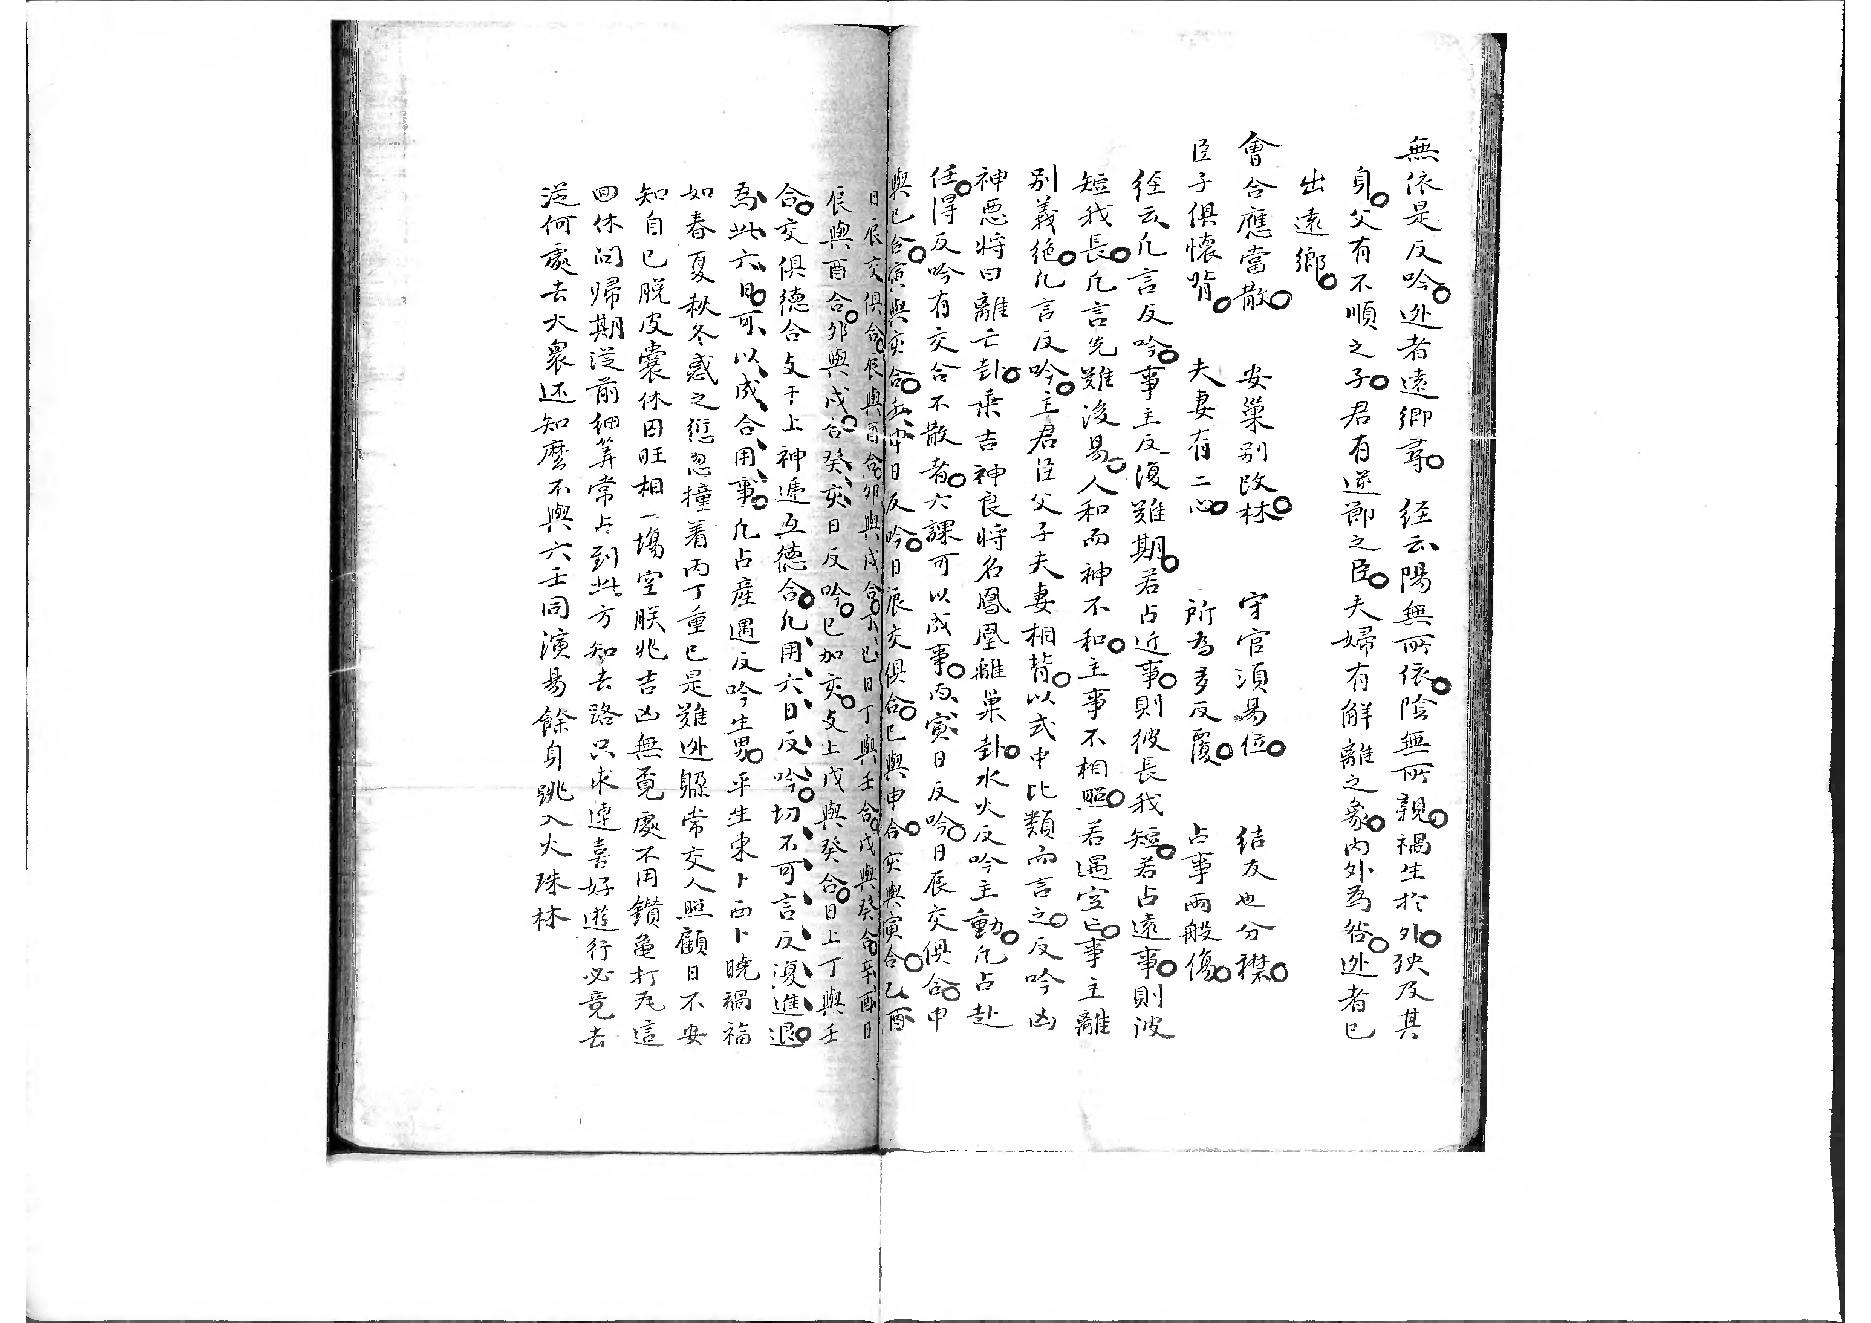 無依是反吟逃者遠鄉尋　經云陽無所依陰無所親禍生於外殃及其
身父有不順之子君有逆節之臣夫婦有解離之象內外為咎逃者已
出遠鄉
會合應當散　安巢別改林　守官須易位　結友也分襟
臣子俱懷背　夫妻有二心　所為多反覆　占事兩般傷
經云凡言反吟事主反復難期若占近事則彼長我短若占遠事則彼
短我長凡言先難後易人和而神不和主事不相照若遇空亡事主離
別義絕凡言反吟主君臣父子夫妻相背以式中比類而言之反吟凶
神惡將曰離亡卦乘吉神良將名鳳凰離巢卦水火反吟主動凡占赴
任得反吟有交合不散者六課可以成事丙寅日反吟日辰交俱合申
與巳合寅與亥合 日反吟日辰交俱合巳與申合亥與寅合乙酉
日辰交俱合辰與酉合卯與戌合 巳日丁與壬合戊與癸合辛酉日
辰與酉合卯與戌合癸亥日反吟巳加亥支上戊與癸合日上丁與壬
合交俱德合支干上神遞互德合凡用六日反吟切不可言反復進退
為此六日可以成合用事凡占產遇反吟生男平生東卜西卜曉禍福
如春夏秋冬惑之愆忽撞着丙丁重已是難逃 常交人照顧日不安
知自已脫皮囊休囚旺相一場空朕兆吉凶無覓處不用鑽龜打瓦這
回休問歸期從前細算常占到此方知去路只求速喜好遊行必竟去
從何處去大衆还知麽不與六壬同演易餘身跳入火珠林